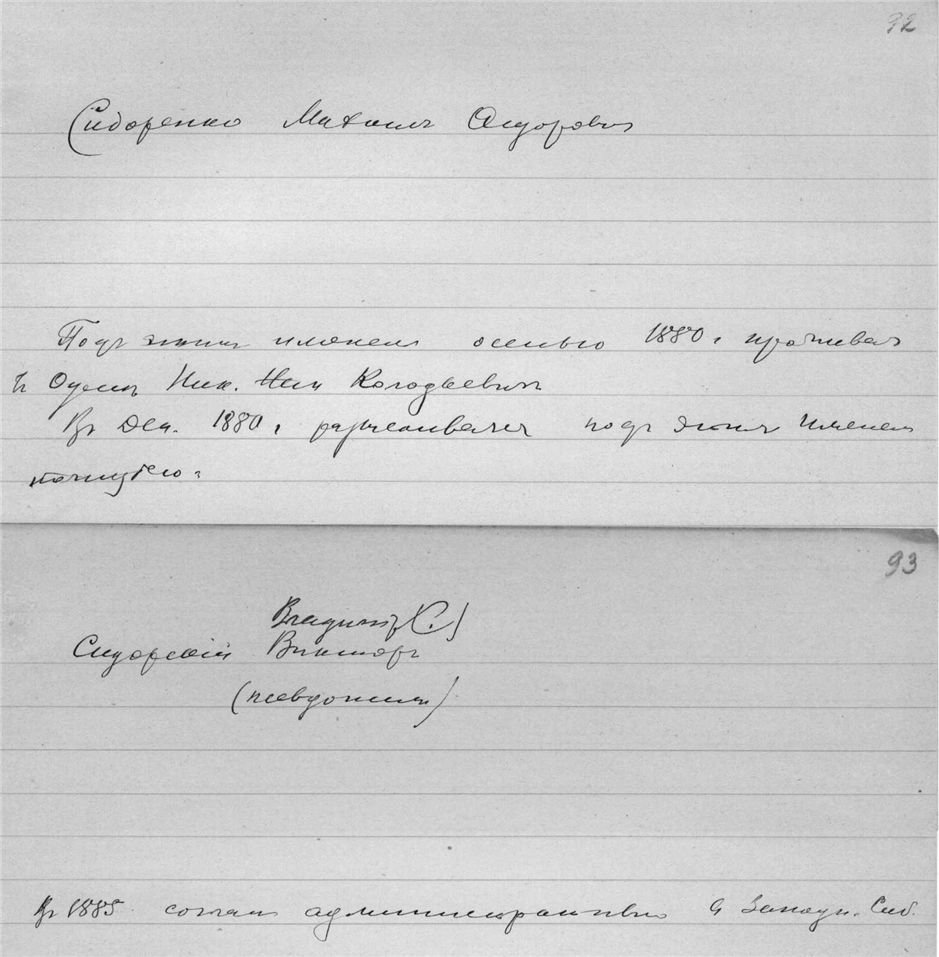 92
Сидоренко Михаилъ Сидоровъ
Подъ этимъ именемъ осенью 1880 г. проживалъ
въ Одессѣ Ник. Ник Колодкевичъ
Въ Дек. 1880 г. разыскивался подъ этимъ именемъ
полицiею.
93
Владимiръ С.)
Сидорскiй Викторъ
(псевдонимъ)
Въ 1885 сосланъ административно в Западн. Сиб.